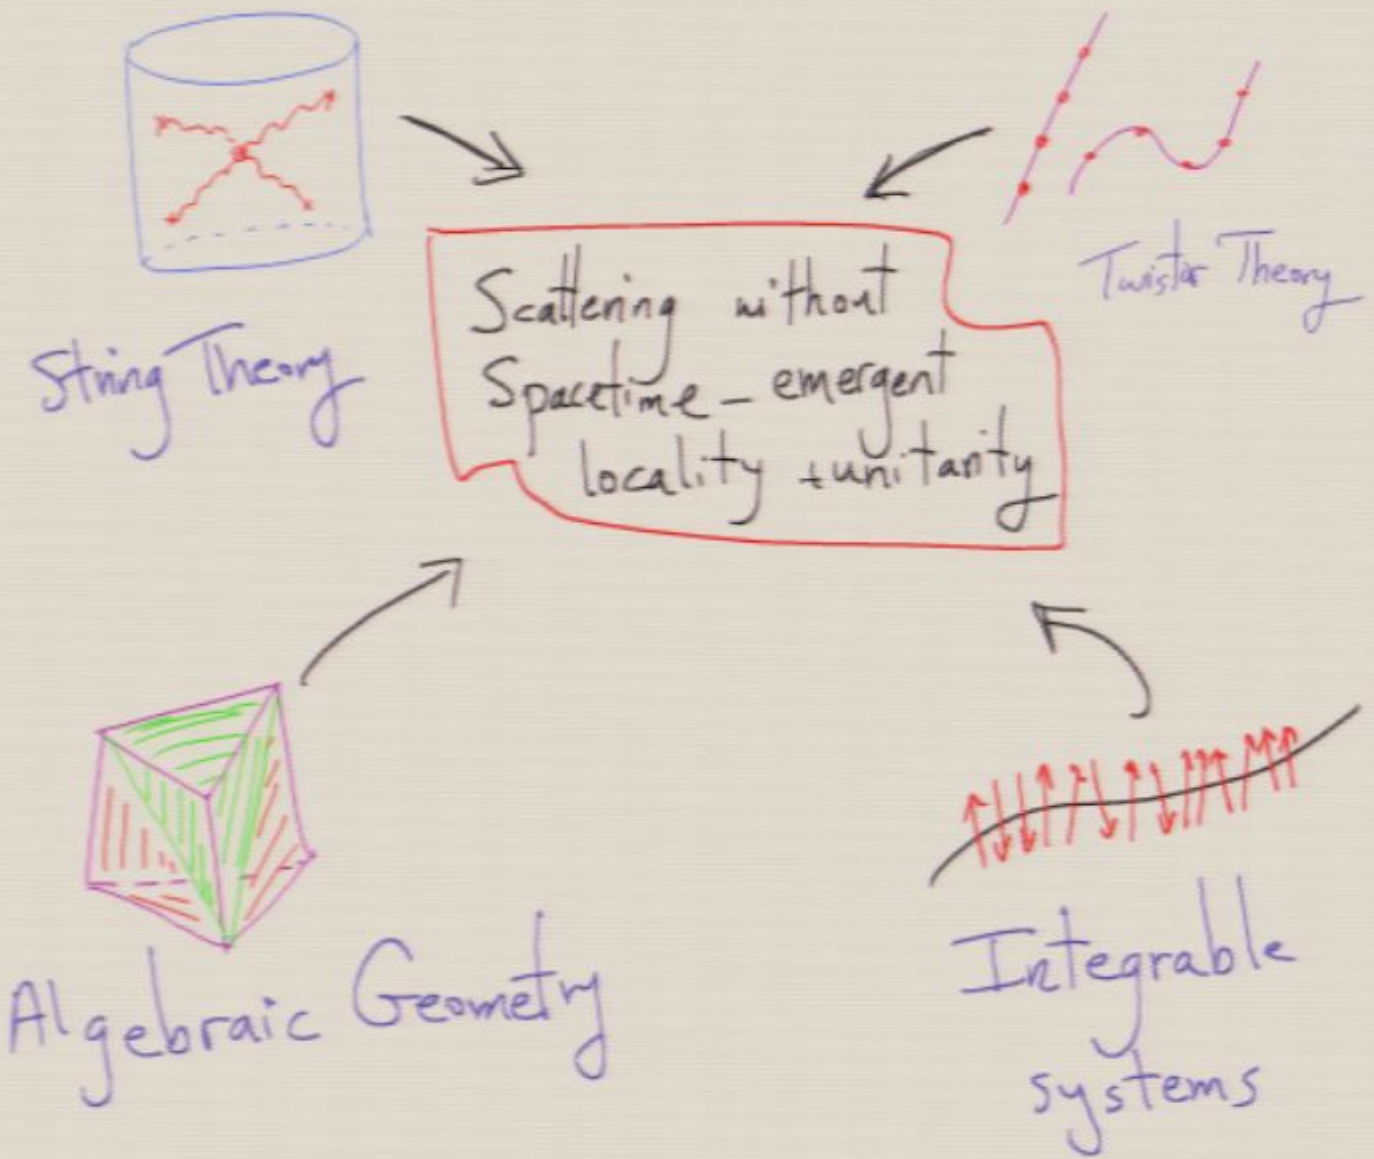 Twistor Theory
Scattering without
Spacetime - emergent
locality + unitarity
String Theory
Algebraic Geometry
Integrable
systems